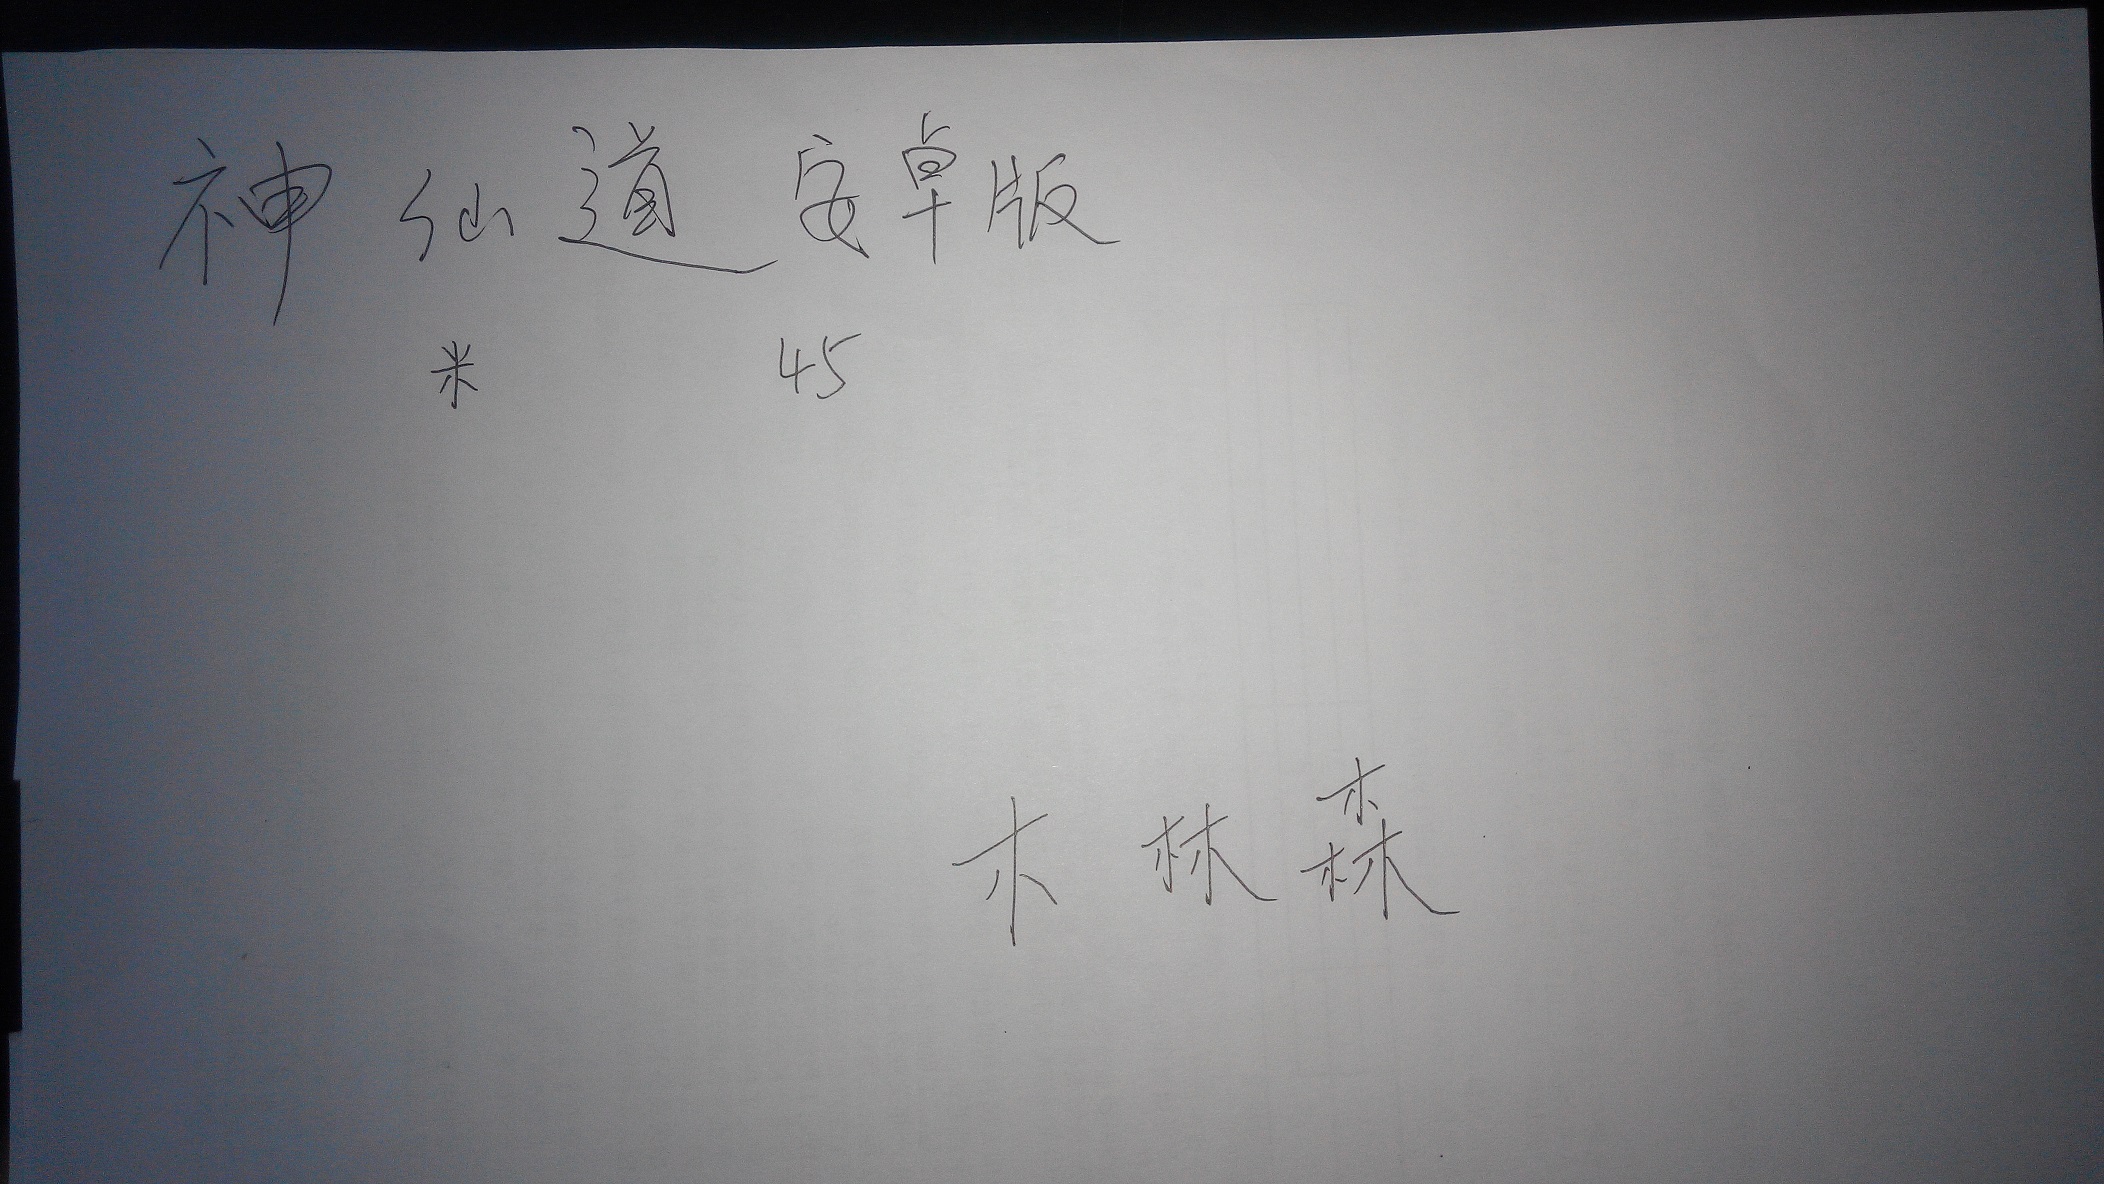 神仙道 安卓版
米 45
木 林 森